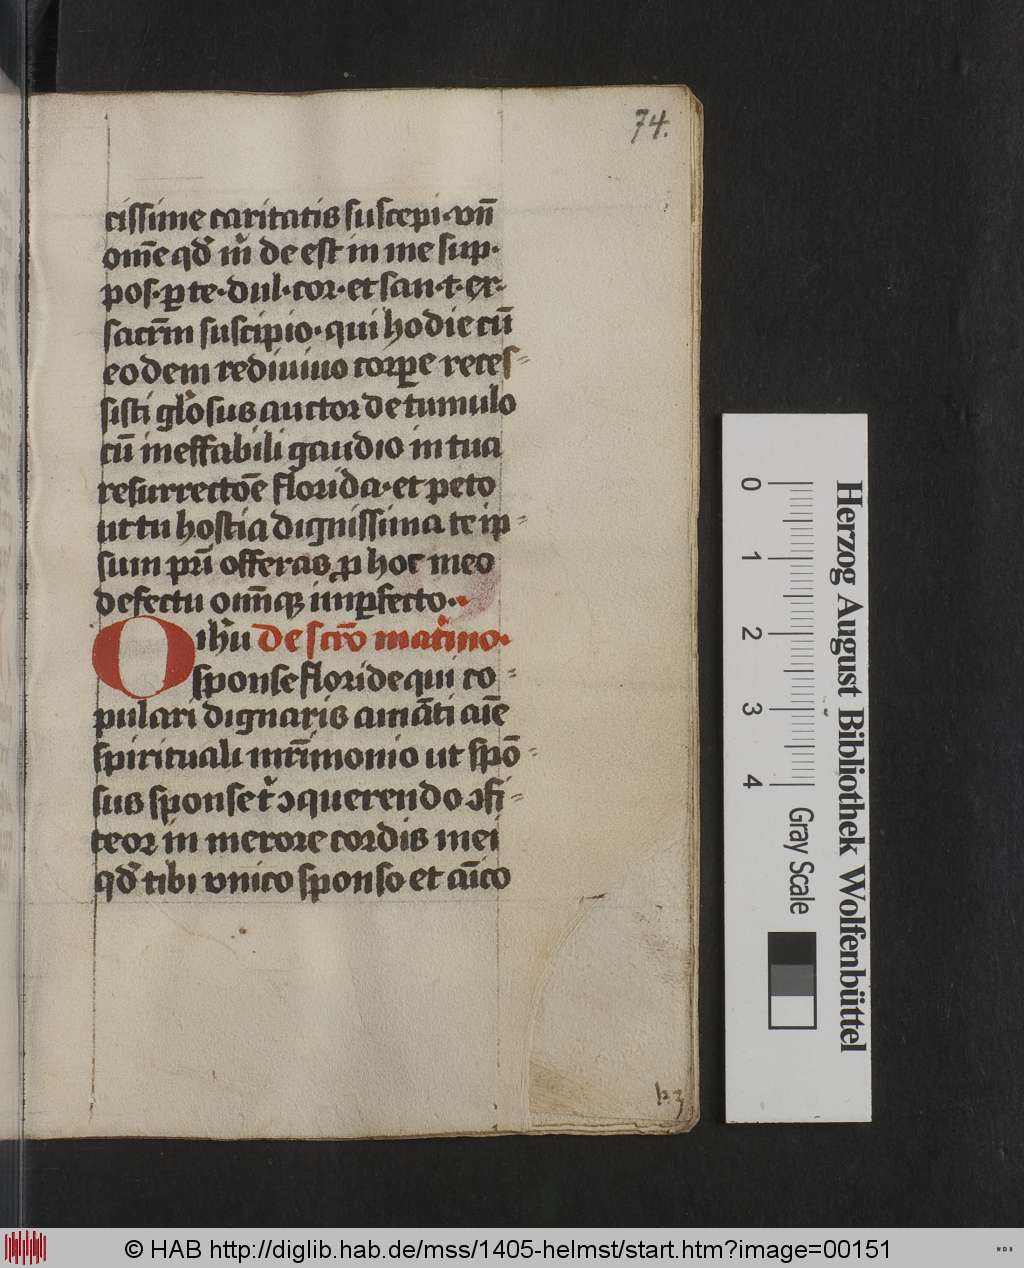 74.
cissime caritatis suscepi·vn̄
om̄e qd̓ m̓ de est in me sup·
pos·ꝑ te·dul·cor·et san·t·er·
sacr̄m suscipio·qui hodie cū
eodem rediuiuo corꝑe reces⸗
sisti gl̓osus auctor de tumulo
cū ineffabili gaudio in tua
resurrectōe florida·et peto
ut tu hostia dignissima te ip⸗
sum pr̄i offeras ꝓ hoc meo
defectu om̄iqꝫ imꝑfecto·
O ihū de sc̄ro mat̓mo·
sponse floride qui co⸗
pulari dignaris amāti aīe
spirituali mr̄imonio ut spō⸗
sus sponse t̓ ↄquerendo ↄfi⸗
teor in merore cordis mei
qd̓ tibi vnico sponso et aīco
k 3
0 1 2 3 4
Gray Scale
Herzog August Bibliothek Wolfenbüttel
© HAB http://diglib.hab.de/mss/1405-helmst/start.htm?image=00151